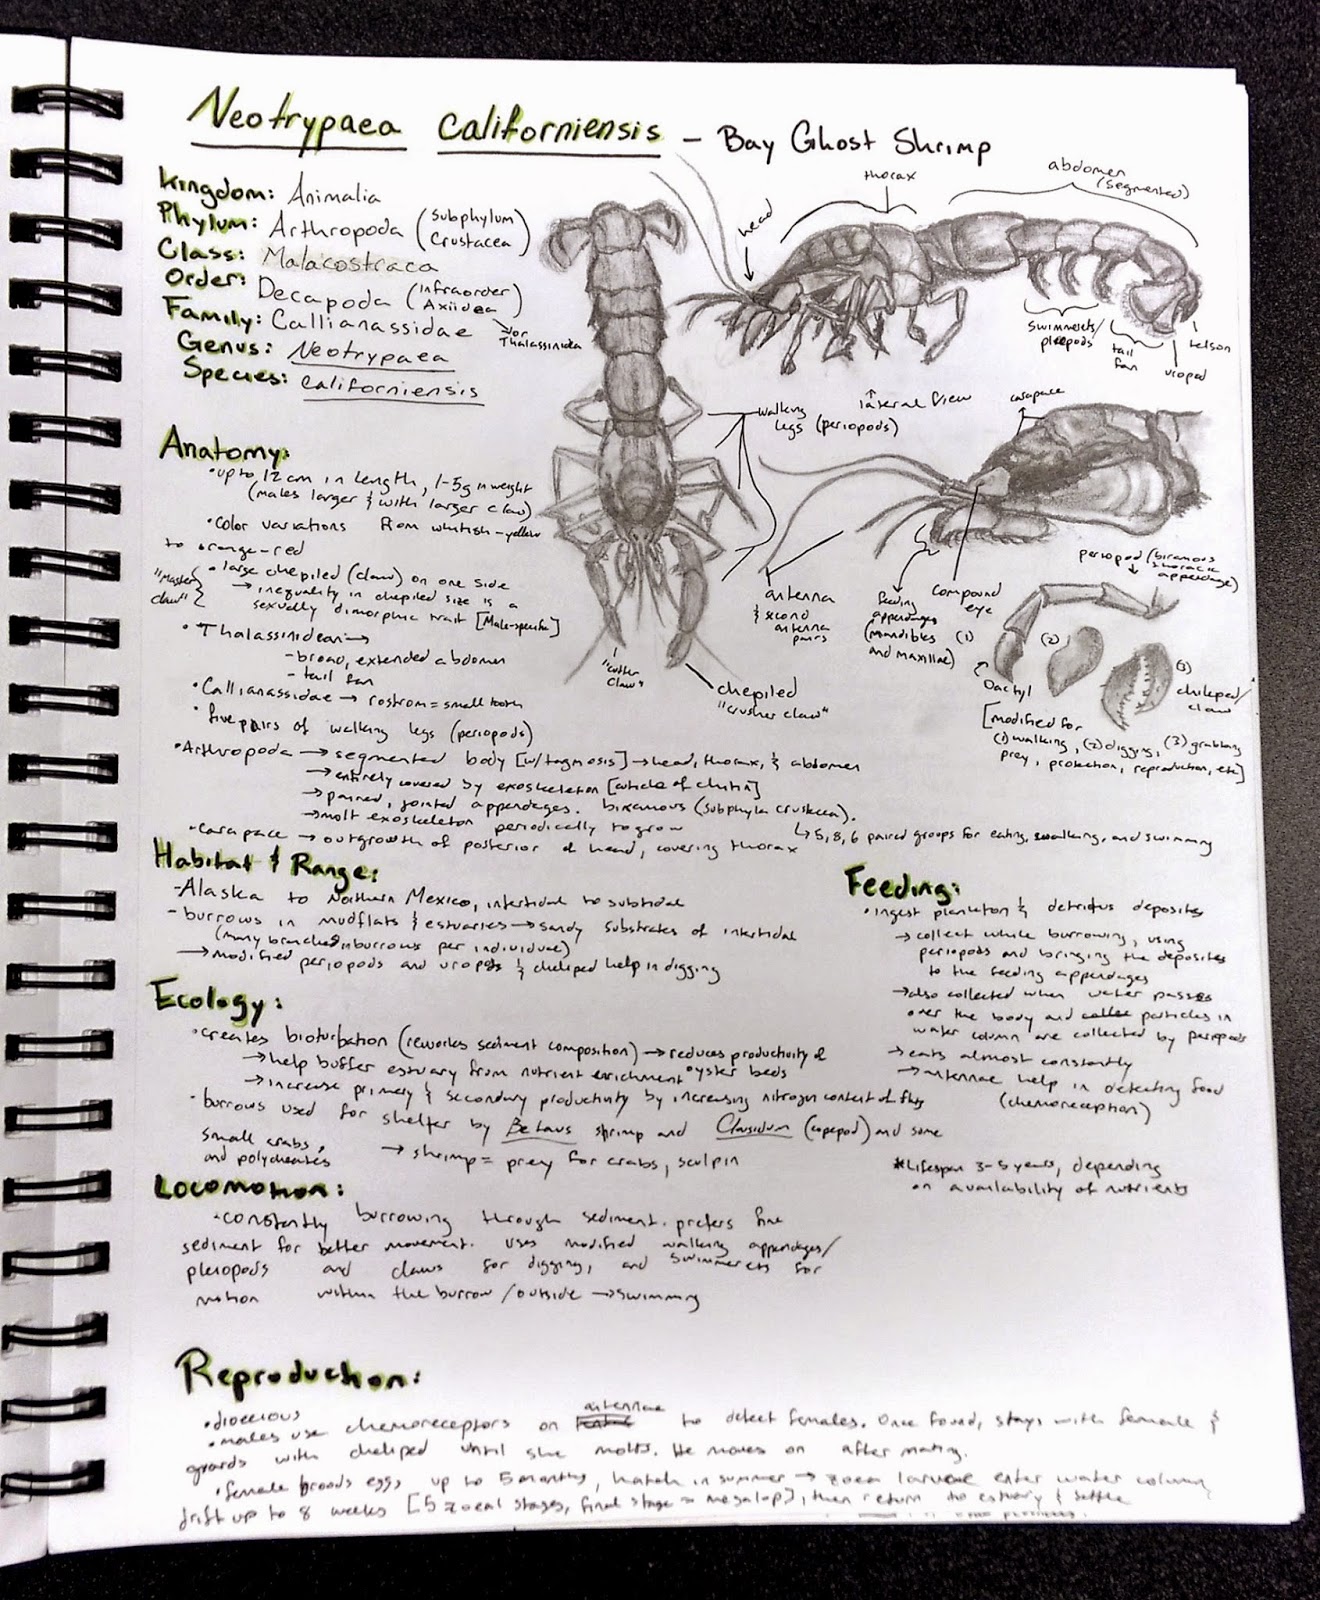 Neotrypaea californiensis - Bay Ghost Shrimp
Kingdom: Animalia
Phylum: Arthropoda (Subphylum Crustacea)
Class: Malacostraca
Order: Decapoda (infraorder Axiidea)
↘or Thalassinidea
Family: Callianassidae
Genus: Neotrypaea
Species: californiensis
head
thorax
abdomen
(segmented)
swimmerets/
pleopods
tail
fan
uropod
telson
↑
lateral view
walking
legs (periopods)
carapace
antenna
& second
antenna
pairs
feeding
appendages
(mandibles
and maxillae)
compound
eye
periopod (biramous
thoracic
appendage)
(1)
(2)
(3)
Dactyl
chiliped/
claw
[modified for
(1) walking, (2) digging, (3) grabbing
prey, protection, reproduction, etc]
"cutter
claw"
chepiled
"crusher claw"
Anatomy:
• up to 12 cm in length, 1-5g in weight
(males larger & with larger claw)
• color variations from whitish-yellow
to orange-red
• large chepiled (claw) on one side
"Master
claw"
→ inequality in chepiled size is a
sexually dimorphic trait [Male-specific]
• Thalassinidean →
- broad, extended abdomen
- tail fan
• Callianassidae → rostrom = small tooth
• five pairs of walking legs (periopods)
• Arthropoda → segmented body [w/tagmosis] → head, thorax, & abdomen
→ entirely covered by exoskeleton [cuticle of chitin]
→ paired, jointed appendages. biramous (subphyla crustacea).
↳ 5, 8, 6 paired groups for eating, walking, and swimming
→ molt exoskeleton periodically to grow
• carapace → outgrowth of posterior of head, covering thorax
Habitat & Range:
- Alaska to Northern Mexico, intertidal to subtidal
- burrows in mudflats & estuaries → sandy substrates of intertidal
(many branched in burrows per individual)
→ modified periopods and uropods & cheliped help in digging
Ecology:
• creates bioturbation (reworks sediment composition) → reduces productivity of
oyster beds
→ help buffer estuary from nutrient enrichment
→ increase primary & secondary productivity by increasing nitrogen content of
• burrows used for shelter by Betaus shrimp and Clausidum (copepod) and some
small crabs,
and polychaetes
→ shrimp = prey for crabs, sculpin
Locomotion:
• constantly burrowing through sediment. prefers fine
sediment for better movement. uses modified walking appendages/
pleiopods and claws for digging, and swimmerets for
motion within the burrow/outside → swimming
Feeding:
• ingest plankton & detritus deposites
→ collect while burrowing, using
periopods and bringing the deposites
to the feeding appendages
→ also collected when water passes
over the body and particles in
water column are collected by periopods
→ eats almost constantly
→ antennae help in detecting food
(chemoreception)
* Lifespan 3-5 years, depending
on availability of nutrients
Reproduction:
• dioecious
• males use chemoreceptors on antennae to detect females. Once found, stays with female &
guards with cheliped until she molts. He moves on after mating.
• female broods eggs up to 5 months, hatch in summer → zoea larvae enter water column,
drift up to 8 weeks [5 zoeal stages, final stage = megalop], then return to estuary & settle